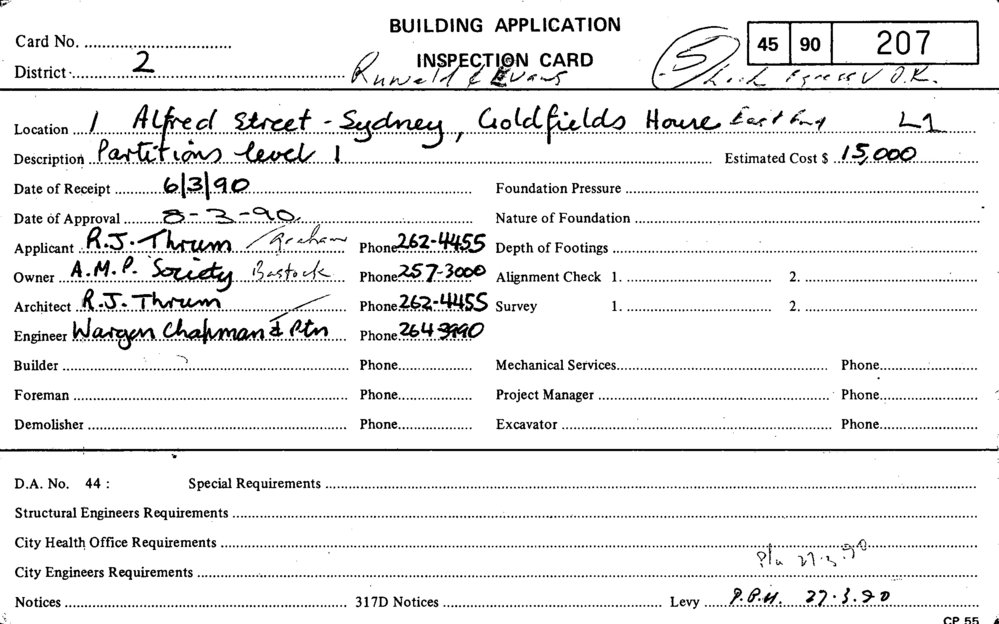 BUILDING APPLICATION
INSPECTION CARD
Card No.
District 2
45 90 207
5 Check Egress V O.K.
Location 1 Alfred Street - Sydney, Goldfields House East End L1
Description Partitions level 1 Estimated Cost $ 15,000
Date of Receipt 6/3/90 Foundation Pressure
Date of Approval 8-3-90. Nature of Foundation
Applicant R.J. Thrum Graham Phone 262-4455 Depth of Footings
Owner A.M.P. Society Bastock Phone 257-3000 Alignment Check 1. 2.
Architect R.J. Thrum Phone 262-4455 Survey 1. 2.
Engineer Wargon Chapman & Ptn Phone 264 3990
Builder Phone Mechanical Services Phone
Foreman Phone Project Manager Phone
Demolisher Phone Excavator Phone
D.A. No. 44 : Special Requirements
Structural Engineers Requirements
City Health Office Requirements
City Engineers Requirements
Notices 317D Notices Levy 27.3.90
CP 55